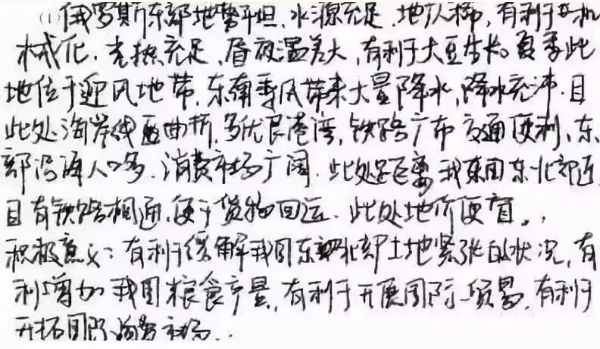 (1)俄罗斯东部地势平坦,水源充足,地广人稀,有利于开机
械化.光热充足,昼夜温差大,有利于大豆生长。夏季此
地位于迎风地带,东南季风带来大量降水,降水充沛.且
此处海岸线曲折,多优良港湾,铁路广布交通便利,东
部沿海人口多.消费市场广阔.此处距离我国东北部近
且有铁路相通,便于货物回运.此处地价便宜。
积极意义:有利于缓解我国东北部土地紧张的状况,有
利增加我国粮食产量,有利于开展国际贸易.有利于
开拓国际消费市场..